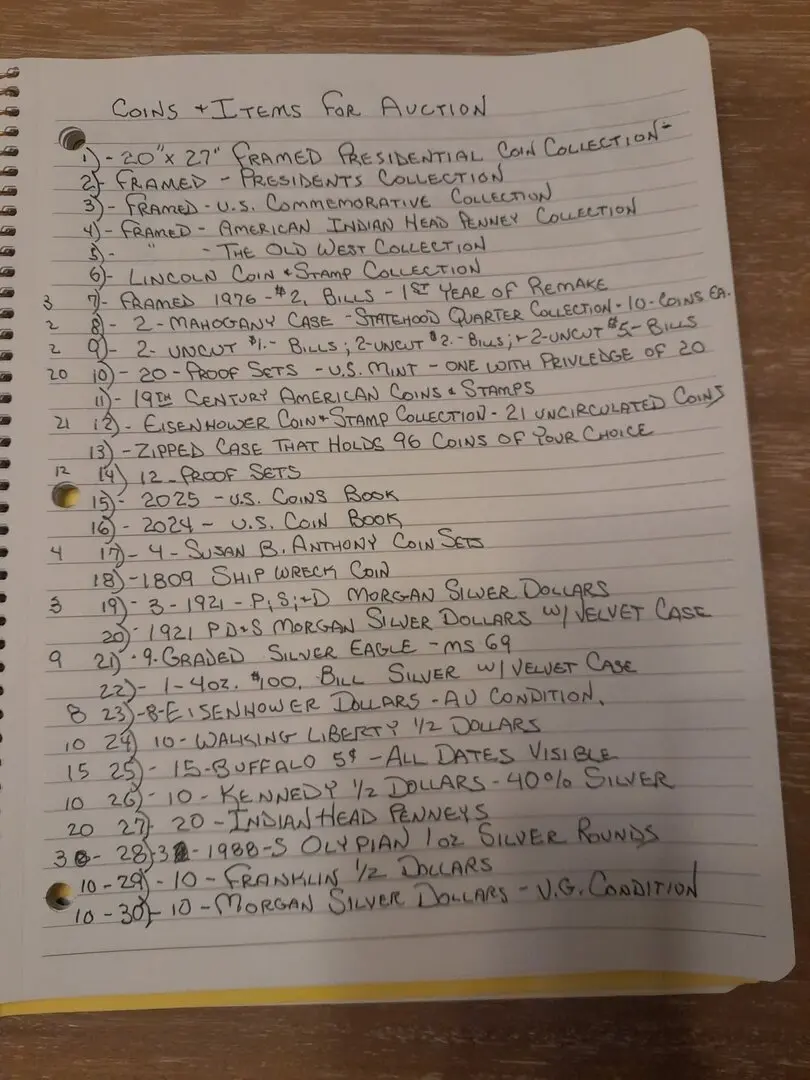 COINS + ITEMS FOR AUCTION
1)- 20"x 27" FRAMED PRESIDENTIAL COIN COLLECTION-
2)- FRAMED - PRESIDENTS COLLECTION
3)- FRAMED - U.S. COMMEMORATIVE COLLECTION
4)- FRAMED - AMERICAN INDIAN HEAD PENNEY COLLECTION
5- " - THE OLD WEST COLLECTION
6)- LINCOLN COIN & STAMP COLLECTION
3 7)- FRAMED 1976 - $2. BILLS - 1ST YEAR OF REMAKE
2 8)- 2- MAHOGANY CASE - STATEHOOD QUARTER COLLECTION - 10-COINS EA.
2 9)- 2- UNCUT $1.- BILLS; 2-UNCUT $2.- BILLS; + 2-UNCUT $5- BILLS
20 10)- 20 - PROOF SETS - U.S. MINT - ONE WITH PRIVLEDGE OF 20
11)- 19TH CENTURY AMERICAN COINS & STAMPS
21 12)- EISENHOWER COIN + STAMP COLLECTION - 21 UNCIRCULATED COINS
13)- ZIPPED CASE THAT HOLDS 96 COINS OF YOUR CHOICE
12 14) 12-PROOF SETS
15)- 2025 - U.S. COINS BOOK
16)- 2024 - U.S. COIN BOOK
4 17)- 4 - SUSAN B. ANTHONY COIN SETS
18)-1809 SHIP WRECK COIN
3 19)- 3 - 1921 - P, S, + D MORGAN SILVER DOLLARS
20)- 1921 P D & S MORGAN SILVER DOLLARS W/ VELVET CASE
9 21) - 9. GRADED SILVER EAGLE - MS 69
22)- 1-4OZ. $100. BILL SILVER W/ VELVET CASE
8 23)-8-EISENHOWER DOLLARS - AU CONDITION.
10 24) 10-WALKING LIBERTY 1/2 DOLLARS
15 25)- 15-BUFFALO 5¢ - ALL DATES VISIBLE
10 26)- 10 - KENNEDY 1/2 DOLLARS - 40% SILVER
20 27)- 20 - INDIAN HEAD PENNEYS
3 - 28)-3 - 1988-S OLYPIAN 1 OZ SILVER ROUNDS
10 - 29)- 10 - FRANKLIN 1/2 DOLLARS
10 - 30)- 10 - MORGAN SILVER DOLLARS - V.G. CONDITION